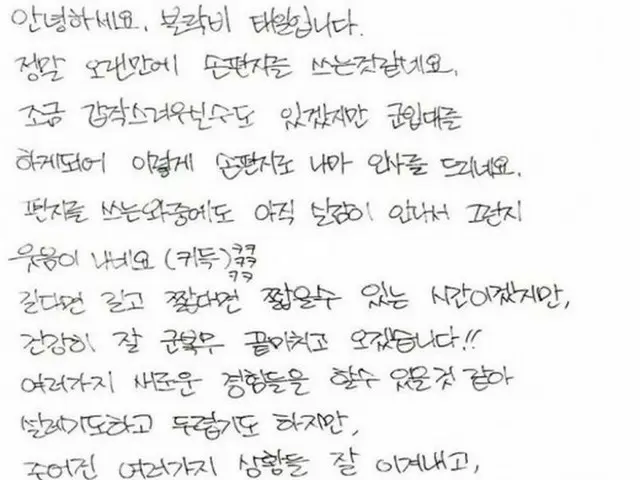 안녕하세요. 블락비 태일입니다.
정말 오랜만에 손편지를 쓰는것같네요.
조금 갑작스러우실수도 있겠지만 군입대를
하게되어 이렇게 손편지로 나마 인사를 드리네요.
편지를 쓰는와중에도 아직 실감이 안나서 그런지
웃음이 나네요 (키득) ㅋㅋ
ㅋㅋ
ㅋㅋ
길다면 길고 짧다면 짧을수 있는 시간이겠지만,
건강히 잘 군복무 끝마치고 오겠습니다!!
여러가지 새로운 경험들을 할수 있을것 같아
설레기도하고 두렵기도 하지만,
주어진 여러가지 상황들 잘 이겨내고,